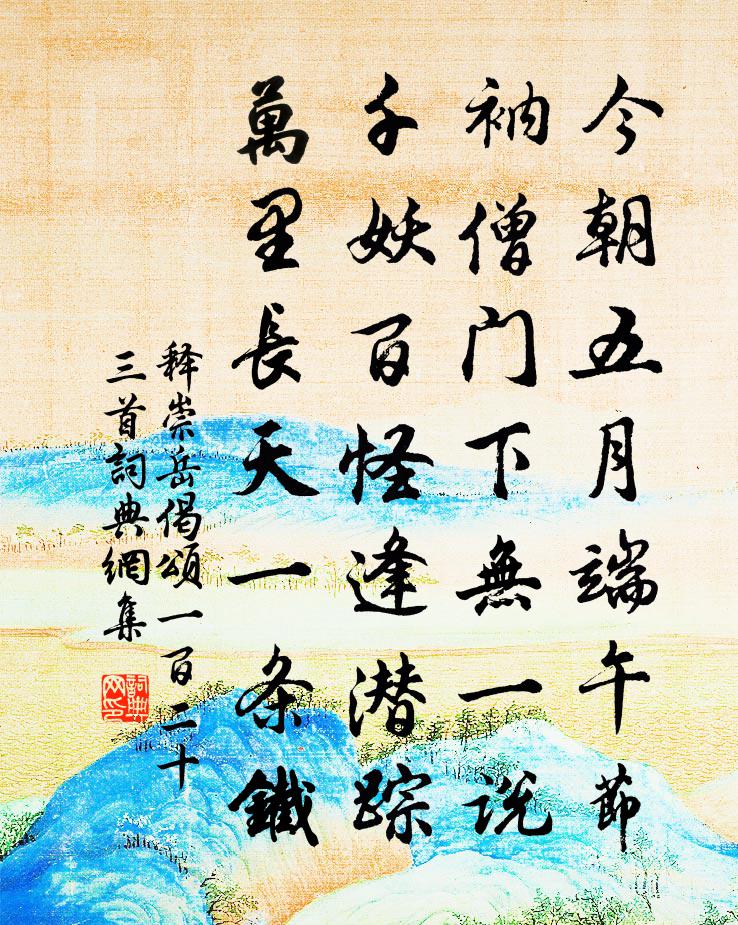 今朝五月端午節
衲僧門下無一説
千妖百怪逢潜踪
萬里長天一条鐵
释崇岳偈頌一百二十
三首詞典網集
詞典
网印